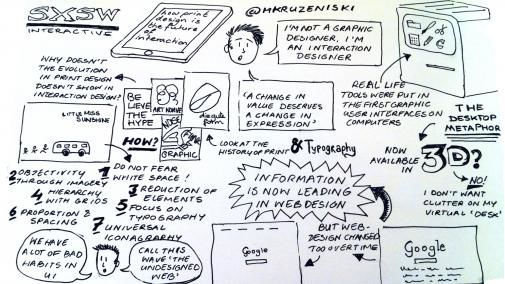 SXSW
INTERACTIVE
how print
design is the
future of
interaction
@MKRUZENISKI
I'M NOT A GRAPHIC
DESIGNER. I'M
AN INTERACTION
DESIGNER
WHY DOESN'T
THE EVOLUTION
IN PRINT DESIGN
DOESN'T SHOW IN
INTERACTION DESIGN?
BE
LIEVE
THE
HYPE
ART NOUVEAU
GRAPHIC
HOW?
'A CHANGE IN
VALUE DESERVES
A CHANGE IN
EXPRESSION!'
REAL LIFE
TOOLS WERE PUT IN
THE FIRST GRAPHIC
USER INTERFACES ON
COMPUTERS
THE
DESKTOP
METAPHOR
NOW
AVAILABLE
IN
3D?
NO!
I DON'T WANT
CLUTTER ON MY
VIRTUAL 'DESK'
LITTLE MISS
SUNSHINE
LOOK AT THE
HISTORY OF PRINT & Typography
1 DO NOT FEAR
WHITE SPACE!
2 OBJECTIVITY
THROUGH IMAGERY
3 REDUCTION OF
ELEMENTS
4 HIERARCHY
WITH GRIDS
5 FOCUS ON
TYPOGRAPHY
6 PROPORTION &
SPACING
7 UNIVERSAL
ICONAGRAPHY
INFORMATION
IS NOW LEADING
IN WEBDESIGN
WE HAVE
A LOT OF BAD
HABITS IN
UI
CALL THIS
WAVE 'THE
UNDESIGNED
WEB'
Google
BUT WEB-
DESIGN CHANGED
TOO OVER TIME
Google